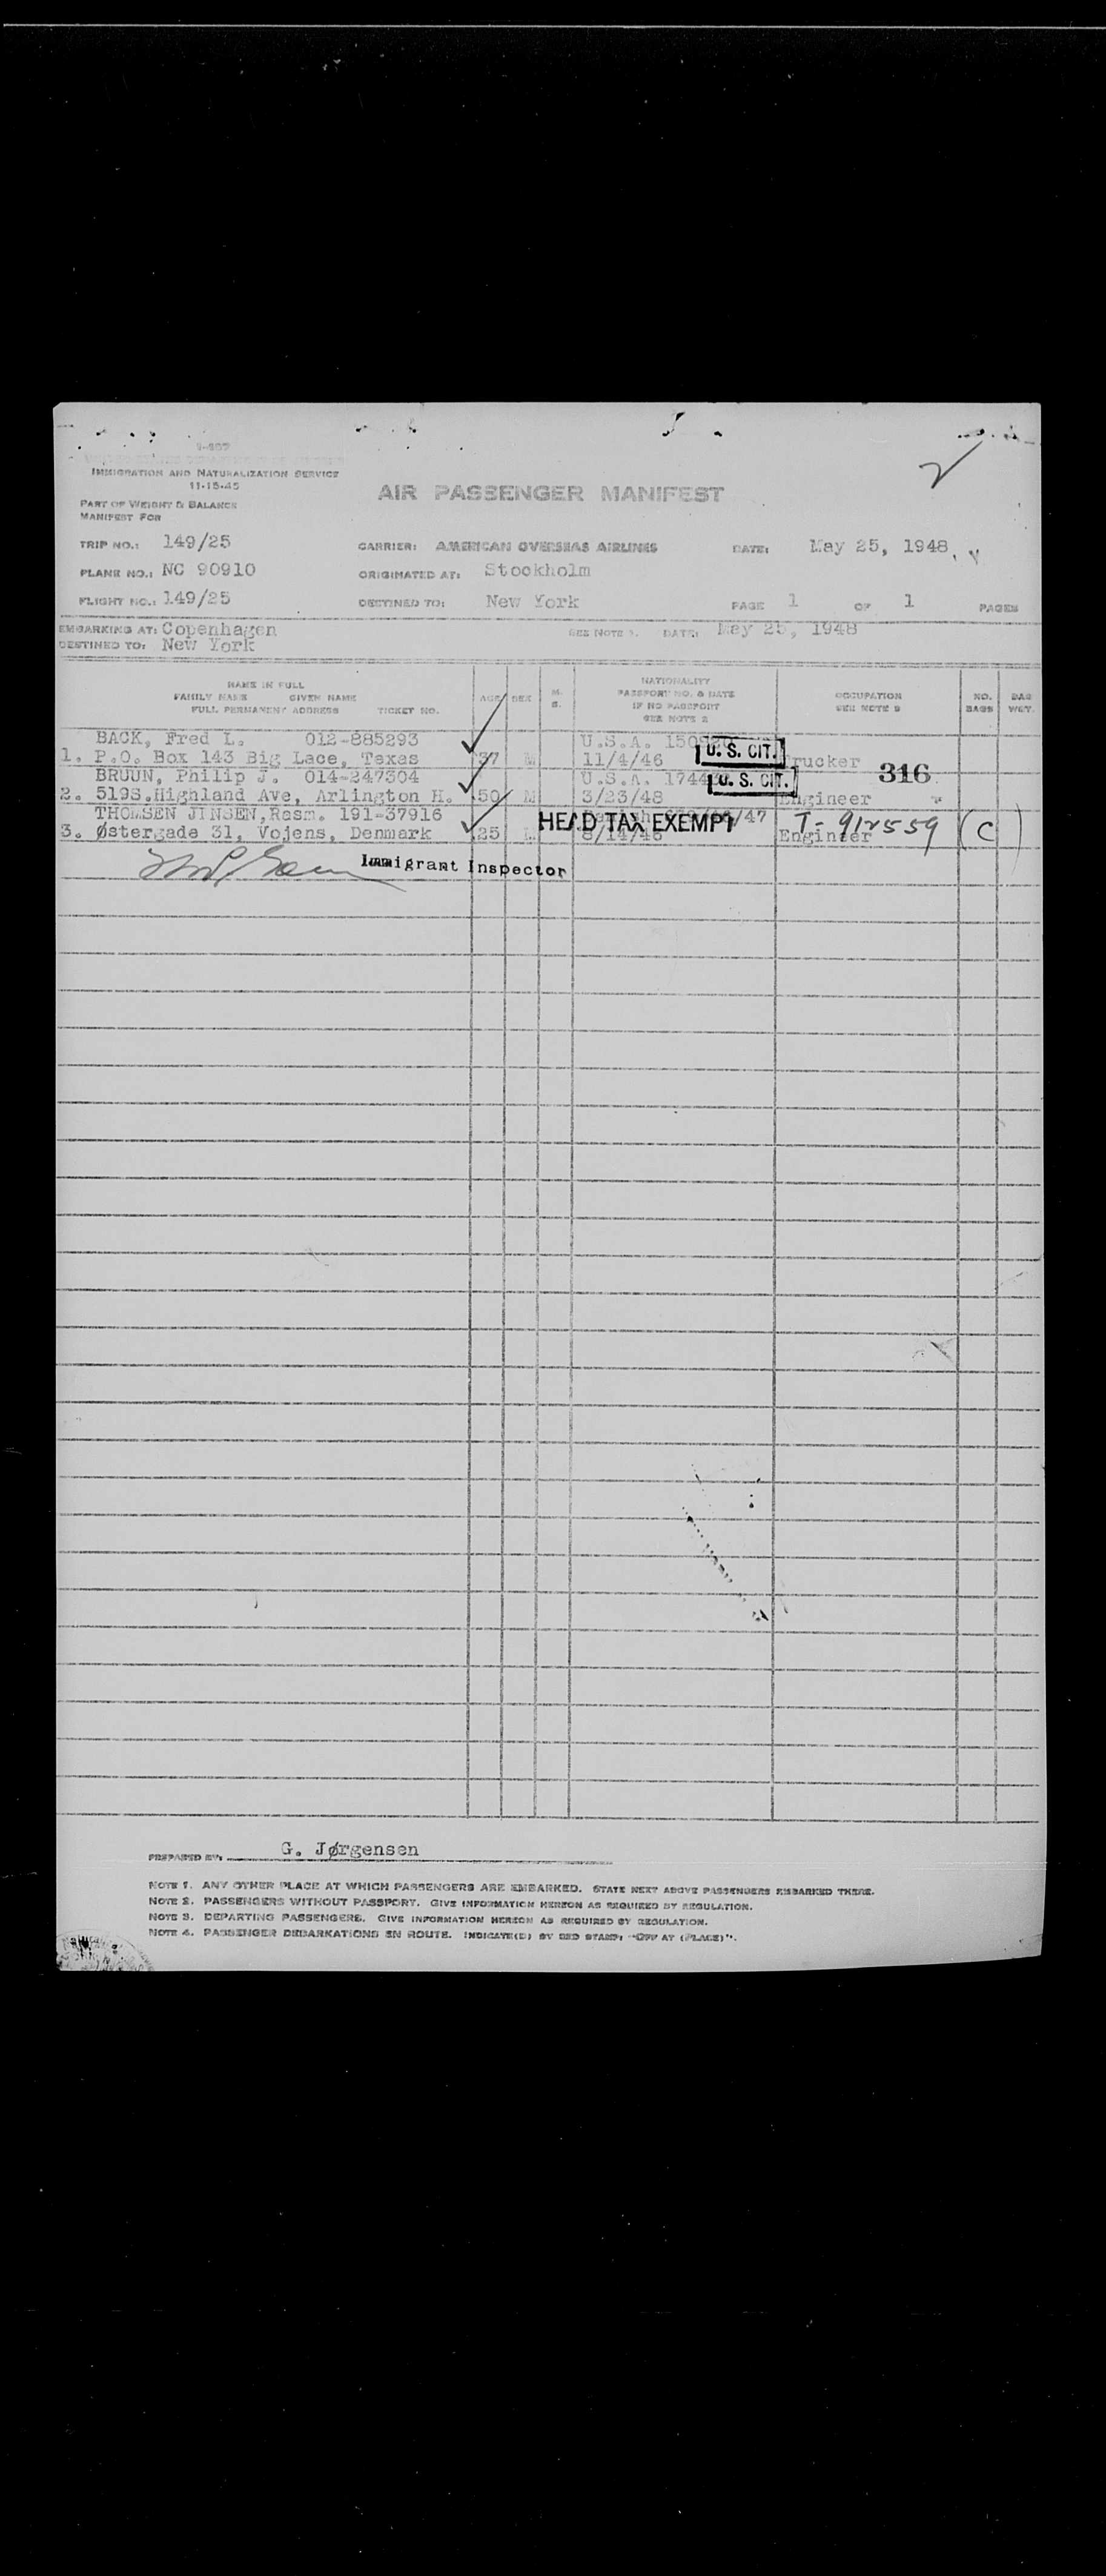 I-407
IMMIGRATION AND NATURALIZATION SERVICE
11-15-45
AIR PASSENGER MANIFEST
PART OF WEIGHT & BALANCE
MANIFEST FOR
TRIP NO.: 149/25 CARRIER: AMERICAN OVERSEAS AIRLINES DATE: May 25, 1948
PLANE NO.: NC 90910 ORIGINATED AT: Stockholm
FLIGHT NO.: 149/25 DESTINED TO: New York PAGE 1 OF 1 PAGES
EMBARKING AT: Copenhagen SEE NOTE 1. DATE: May 25, 1948
DESTINED TO: New York
NAME IN FULL
FAMILY NAME GIVEN NAME
FULL PERMANENT ADDRESS TICKET NO.
AGE SEX M. S.
NATIONALITY
PASSPORT NO. & DATE
IF NO PASSPORT
SEE NOTE 2
OCCUPATION
SEE NOTE 3
NO. BAGS
BAG WGT.
BACK, Fred L. 012-885293 U.S.A. U.S. CIT.
1. P.O. Box 143 Big Lace, Texas 37 M 11/4/46 Trucker 316
BRUUN, Philip J. 014-247304 U.S.A. U.S. CIT.
2. 519S.Highland Ave, Arlington H. 50 M 3/23/48 Engineer
THOMSEN JINSEN,Rasm. 191-37916 HEAD TAX EXEMPT T-912559 (C)
3. Østergade 31, Vojens, Denmark 25 8/14/46 Engineer
Immigrant Inspector
PREPARED BY: G. Jørgensen
NOTE 1. ANY OTHER PLACE AT WHICH PASSENGERS ARE EMBARKED. STATE NEXT ABOVE PASSENGERS EMBARKED THERE.
NOTE 2. PASSENGERS WITHOUT PASSPORT. GIVE INFORMATION HEREON AS REQUIRED BY REGULATION.
NOTE 3. DEPARTING PASSENGERS. GIVE INFORMATION HEREON AS REQUIRED BY REGULATION.
NOTE 4. PASSENGER DEBARKATIONS EN ROUTE. INDICATE(D) BY RED STAMP: "OFF AT (PLACE)".